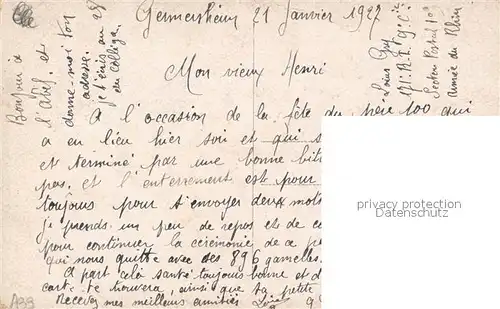 Germersheim 21 Janvier 1922
Mon vieux Henri
A l'occasion de la fête du père 100 qui
a eu lieu hier soir et qui s
et terminé par une bonne
pas, et l'enterrement est pour
toujours pour t'envoyer deux mots
je prends un peu de repos et de ce
pour continuer la cérémonie de ce p
qui nous quitte avec des 896 gamelles.
A part cela santé toujours bonne et d
carte te trouvera, ainsi que ta petite
Recevez mes meilleurs amitiés Louis
Bonjour à
l'Abel, et
donne-moi ton
adresse.
je t'écris au
Louis
Secteur Postal
Armée du Rhin
privacy protection
Datenschutz
A33